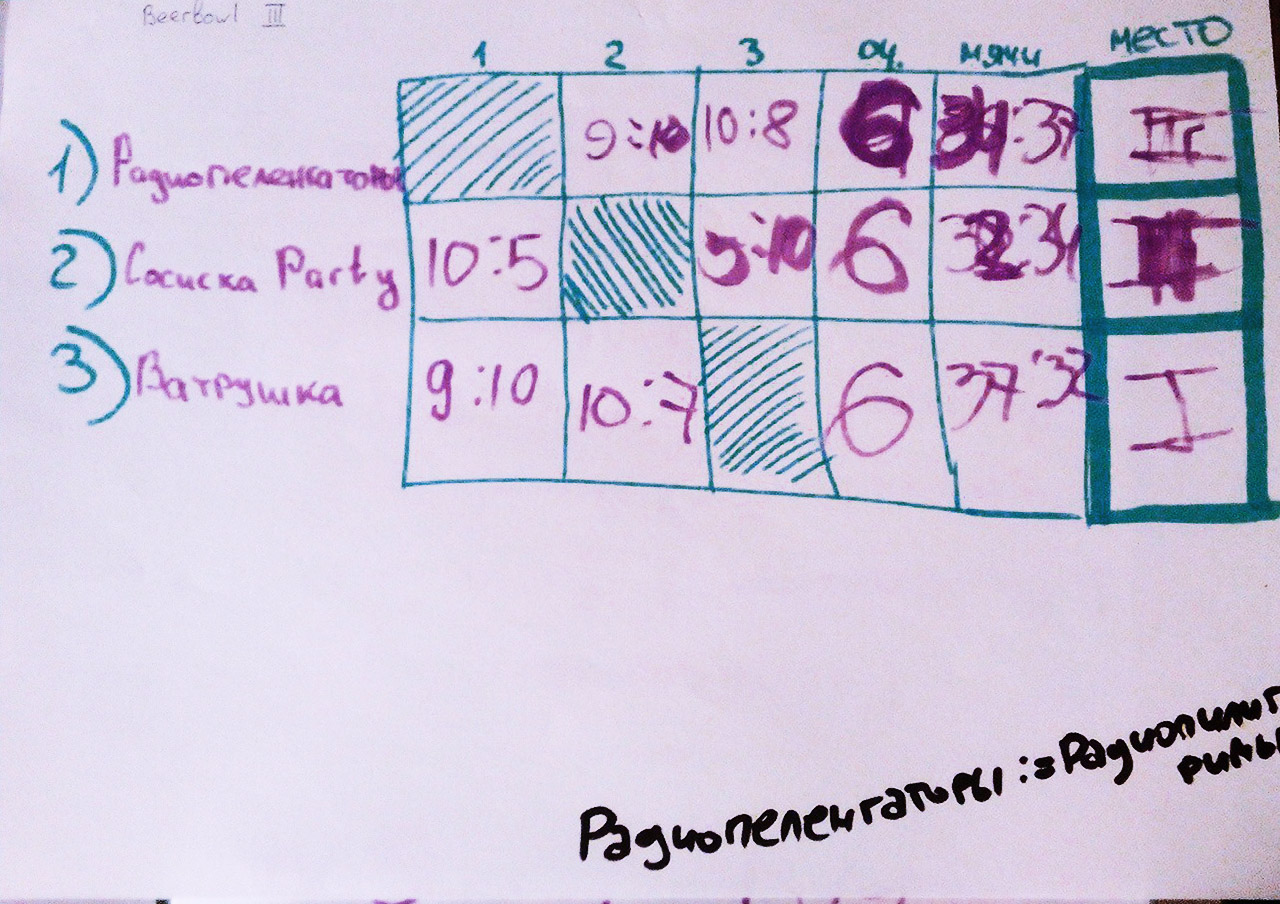 Beerbowl III
1 2 3 оч. мячи место
1) Радиопеленгаторы 9:10 10:8 6 :37
2) Сосиска Party 10:5 5:10 6
3) Ватрушка 9:10 10:7 6 37:32 I
Радиопеленгаторы :=